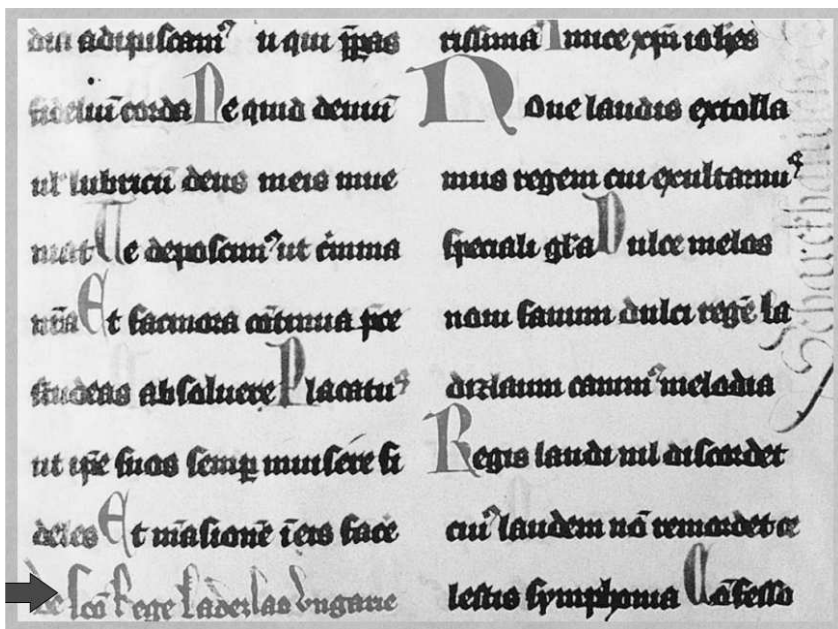 dui adipiscam᷒ u qui p̄pas
fideliū corda Ne quid deuiū
ul' lubricū deus meis mue
niat Te deposcim᷒ ut c̄mina
nr̄a Et facinora cōtinua pce
studeas absoluere Placatu᷒
ut ip̄e suos semp̱ inuisere fi
deles Et māsionē ī eis face
De scō Rege Ladezlao Vngarie
rissima Annue xp̄i iohes
Noue laudis extolla
mus regem cui exultamu᷒
speciali gl̄a Dulce melos
noui sanum dulci regē la
dizlaum canim᷒ melodia
Regis laudi nil discordet
cui᷒ laudem nō remordet ce
lestis symphonia Cōfesso